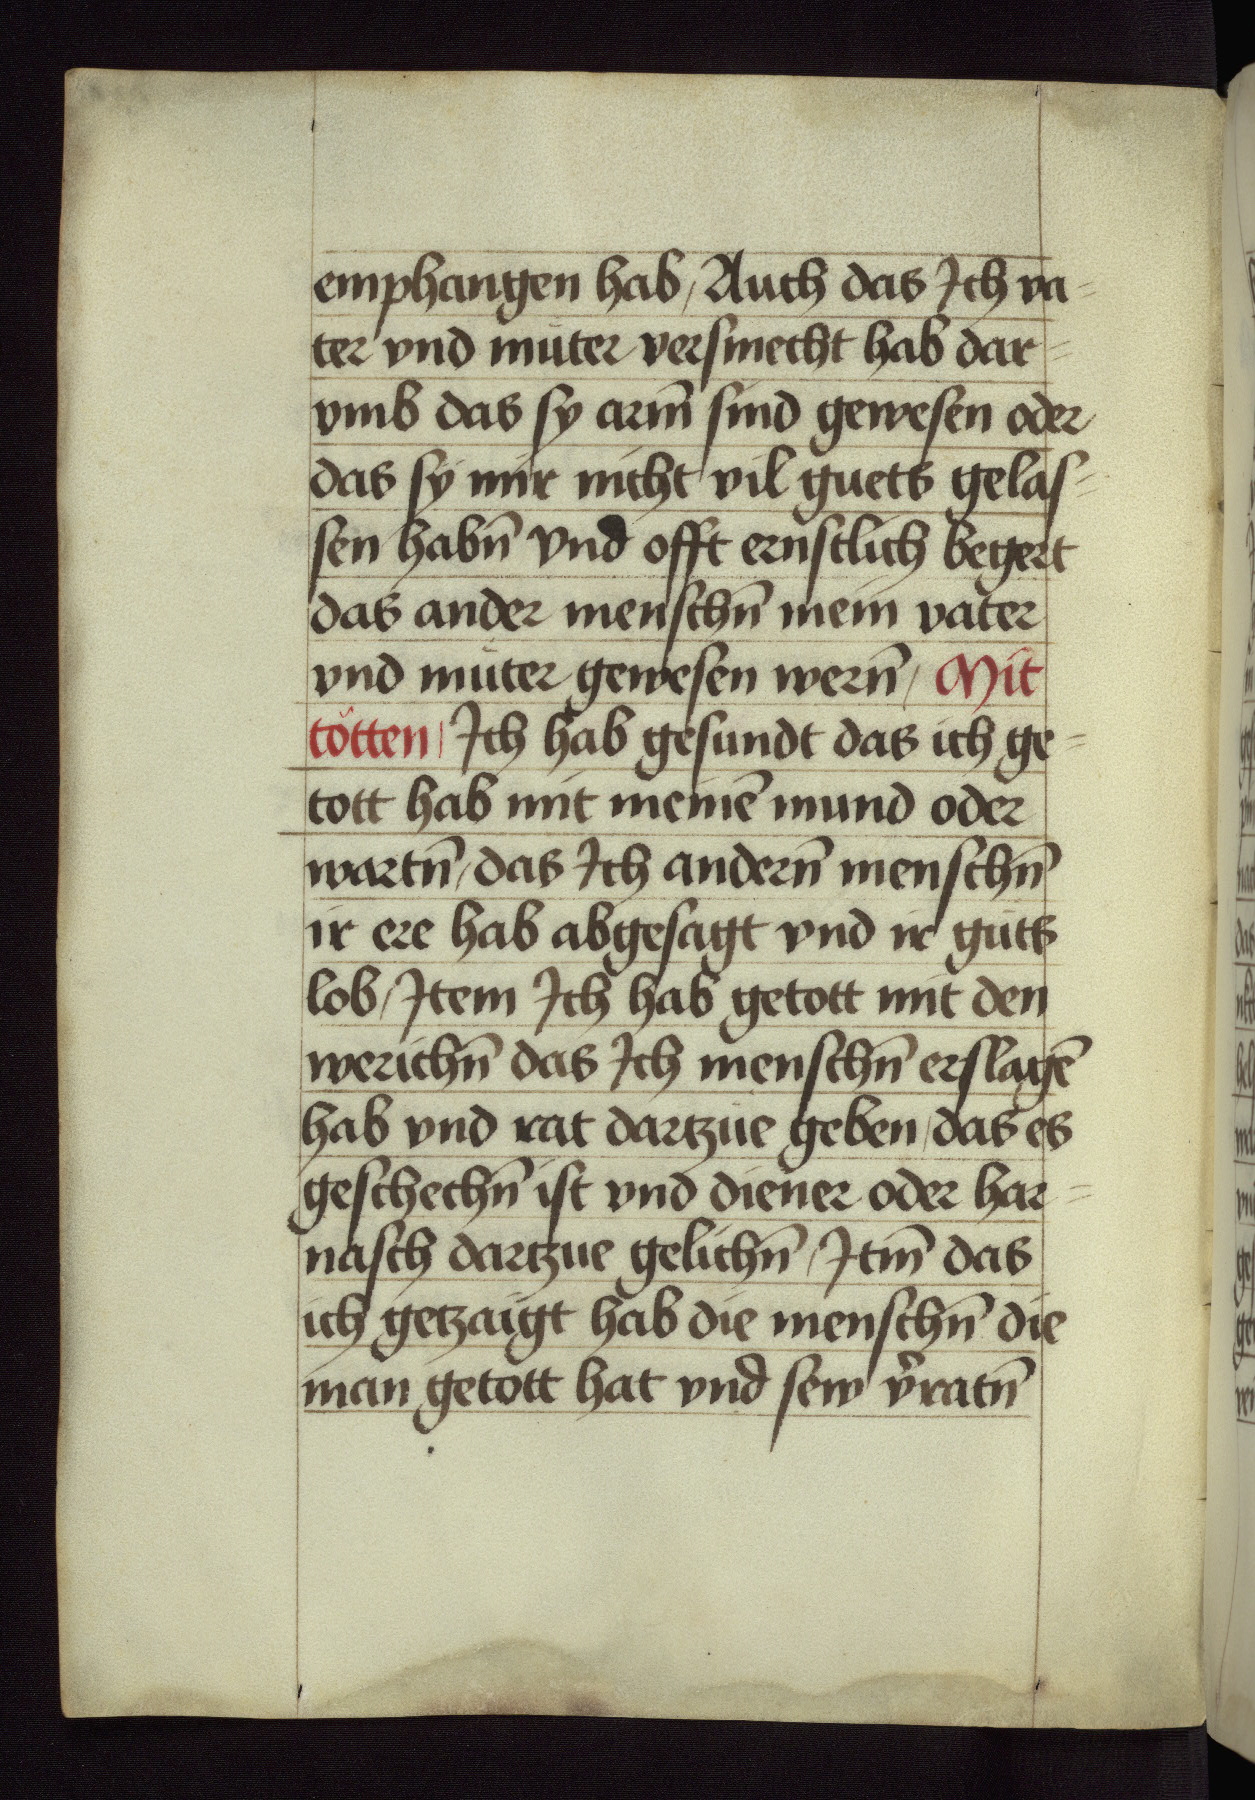 emphangen hab / Auch das Ich va=
ter vnd müter versmecht hab dar=
vmb das sy arm̄ sind gewesen oder
das sy mir nicht vil guets gelas=
sen habn̄ vnd offt ernstlich begert
das ander menschn̄ mein vater
vnd müter gewesen wern̄ / Mit
tötten / Ich hab gesundt das ich ge=
tott hab mit meinē mund oder
wartn̄ / das Ich andern̄ menschn̄
ir ere hab abgesagt vnd ir güts
lob / Item Ich hab getott mit den
werichn̄ das Ich menschn̄ erslagē
hab vnd rat dartzüe geben / das es
geschechn̄ ist vnd diener oder har=
nasch dartzue gelichn̄ / Itm̄ das
ich getzaigt hab die menschn̄ die
man getott hat vnd sew v̄ratn̄